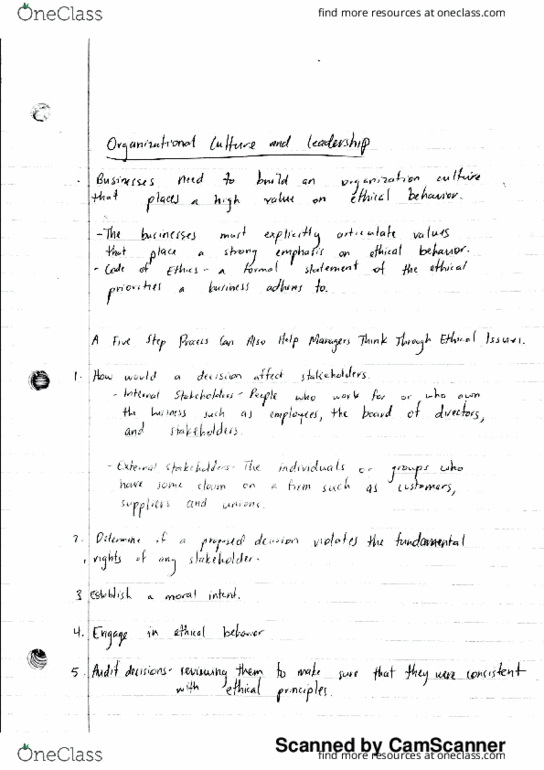 OneClass
find more resources at oneclass.com
Organizational Culture and Leadership
Businesses need to build an organization culture
that places a high value on ethical behavior.
- The businesses must explicitly articulate values
that place a strong emphasis on ethical behavior.
- Code of Ethics - a formal statement of the ethical
priorities a business adheres to.
A Five Step Process Can Also Help Managers Think Through Ethical Issues.
1. How would a decision affect stakeholders.
- Internal Stakeholders - People who work for or who own
the business such as employees, the board of directors,
and stakeholders.
- External stakeholders - The individuals or groups who
have some claim on a firm such as customers,
suppliers and unions.
2. Determine if a proposed decision violates the fundamental
rights of any stakeholder.
3 Establish a moral intent.
4. Engage in ethical behavior
5. Audit decisions - reviewing them to make sure that they were consistent
with ethical principles.
Scanned by CamScanner
OneClass
find more resources at oneclass.com